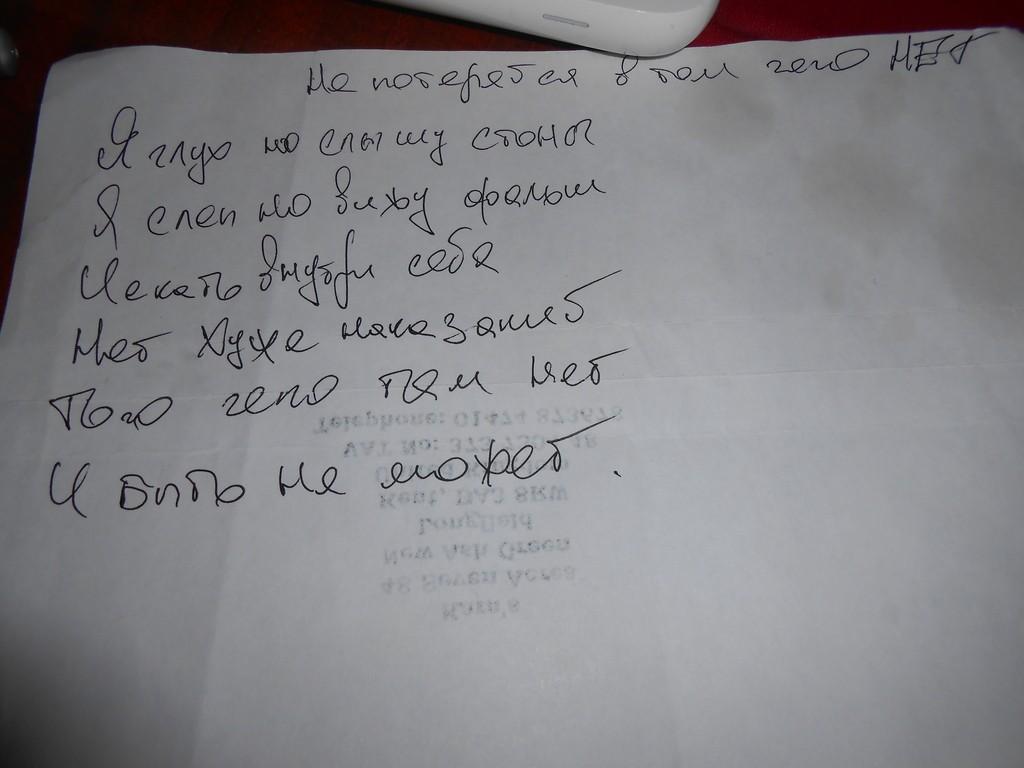 Не потерятся в том чего НЕТ
Я глух но слышу стоны
Я слеп но вижу фальш
Искать внутри себя
Нет Хуже
Того чего там нет
Telephone: 01474 873678
VAT No: 373
И быть не может .
Kent, DA3 8RW
Longfield
New Ash Green
48 Seven Acres